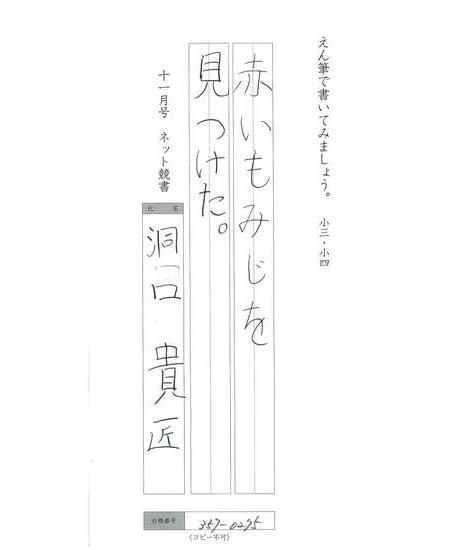 えん筆で書いてみましょう。 小三・小四
赤いもみじを
見つけた。
十一月号 ネット競書
氏名
洞口 貴匠
合格番号 357-0295
（コピー不可）